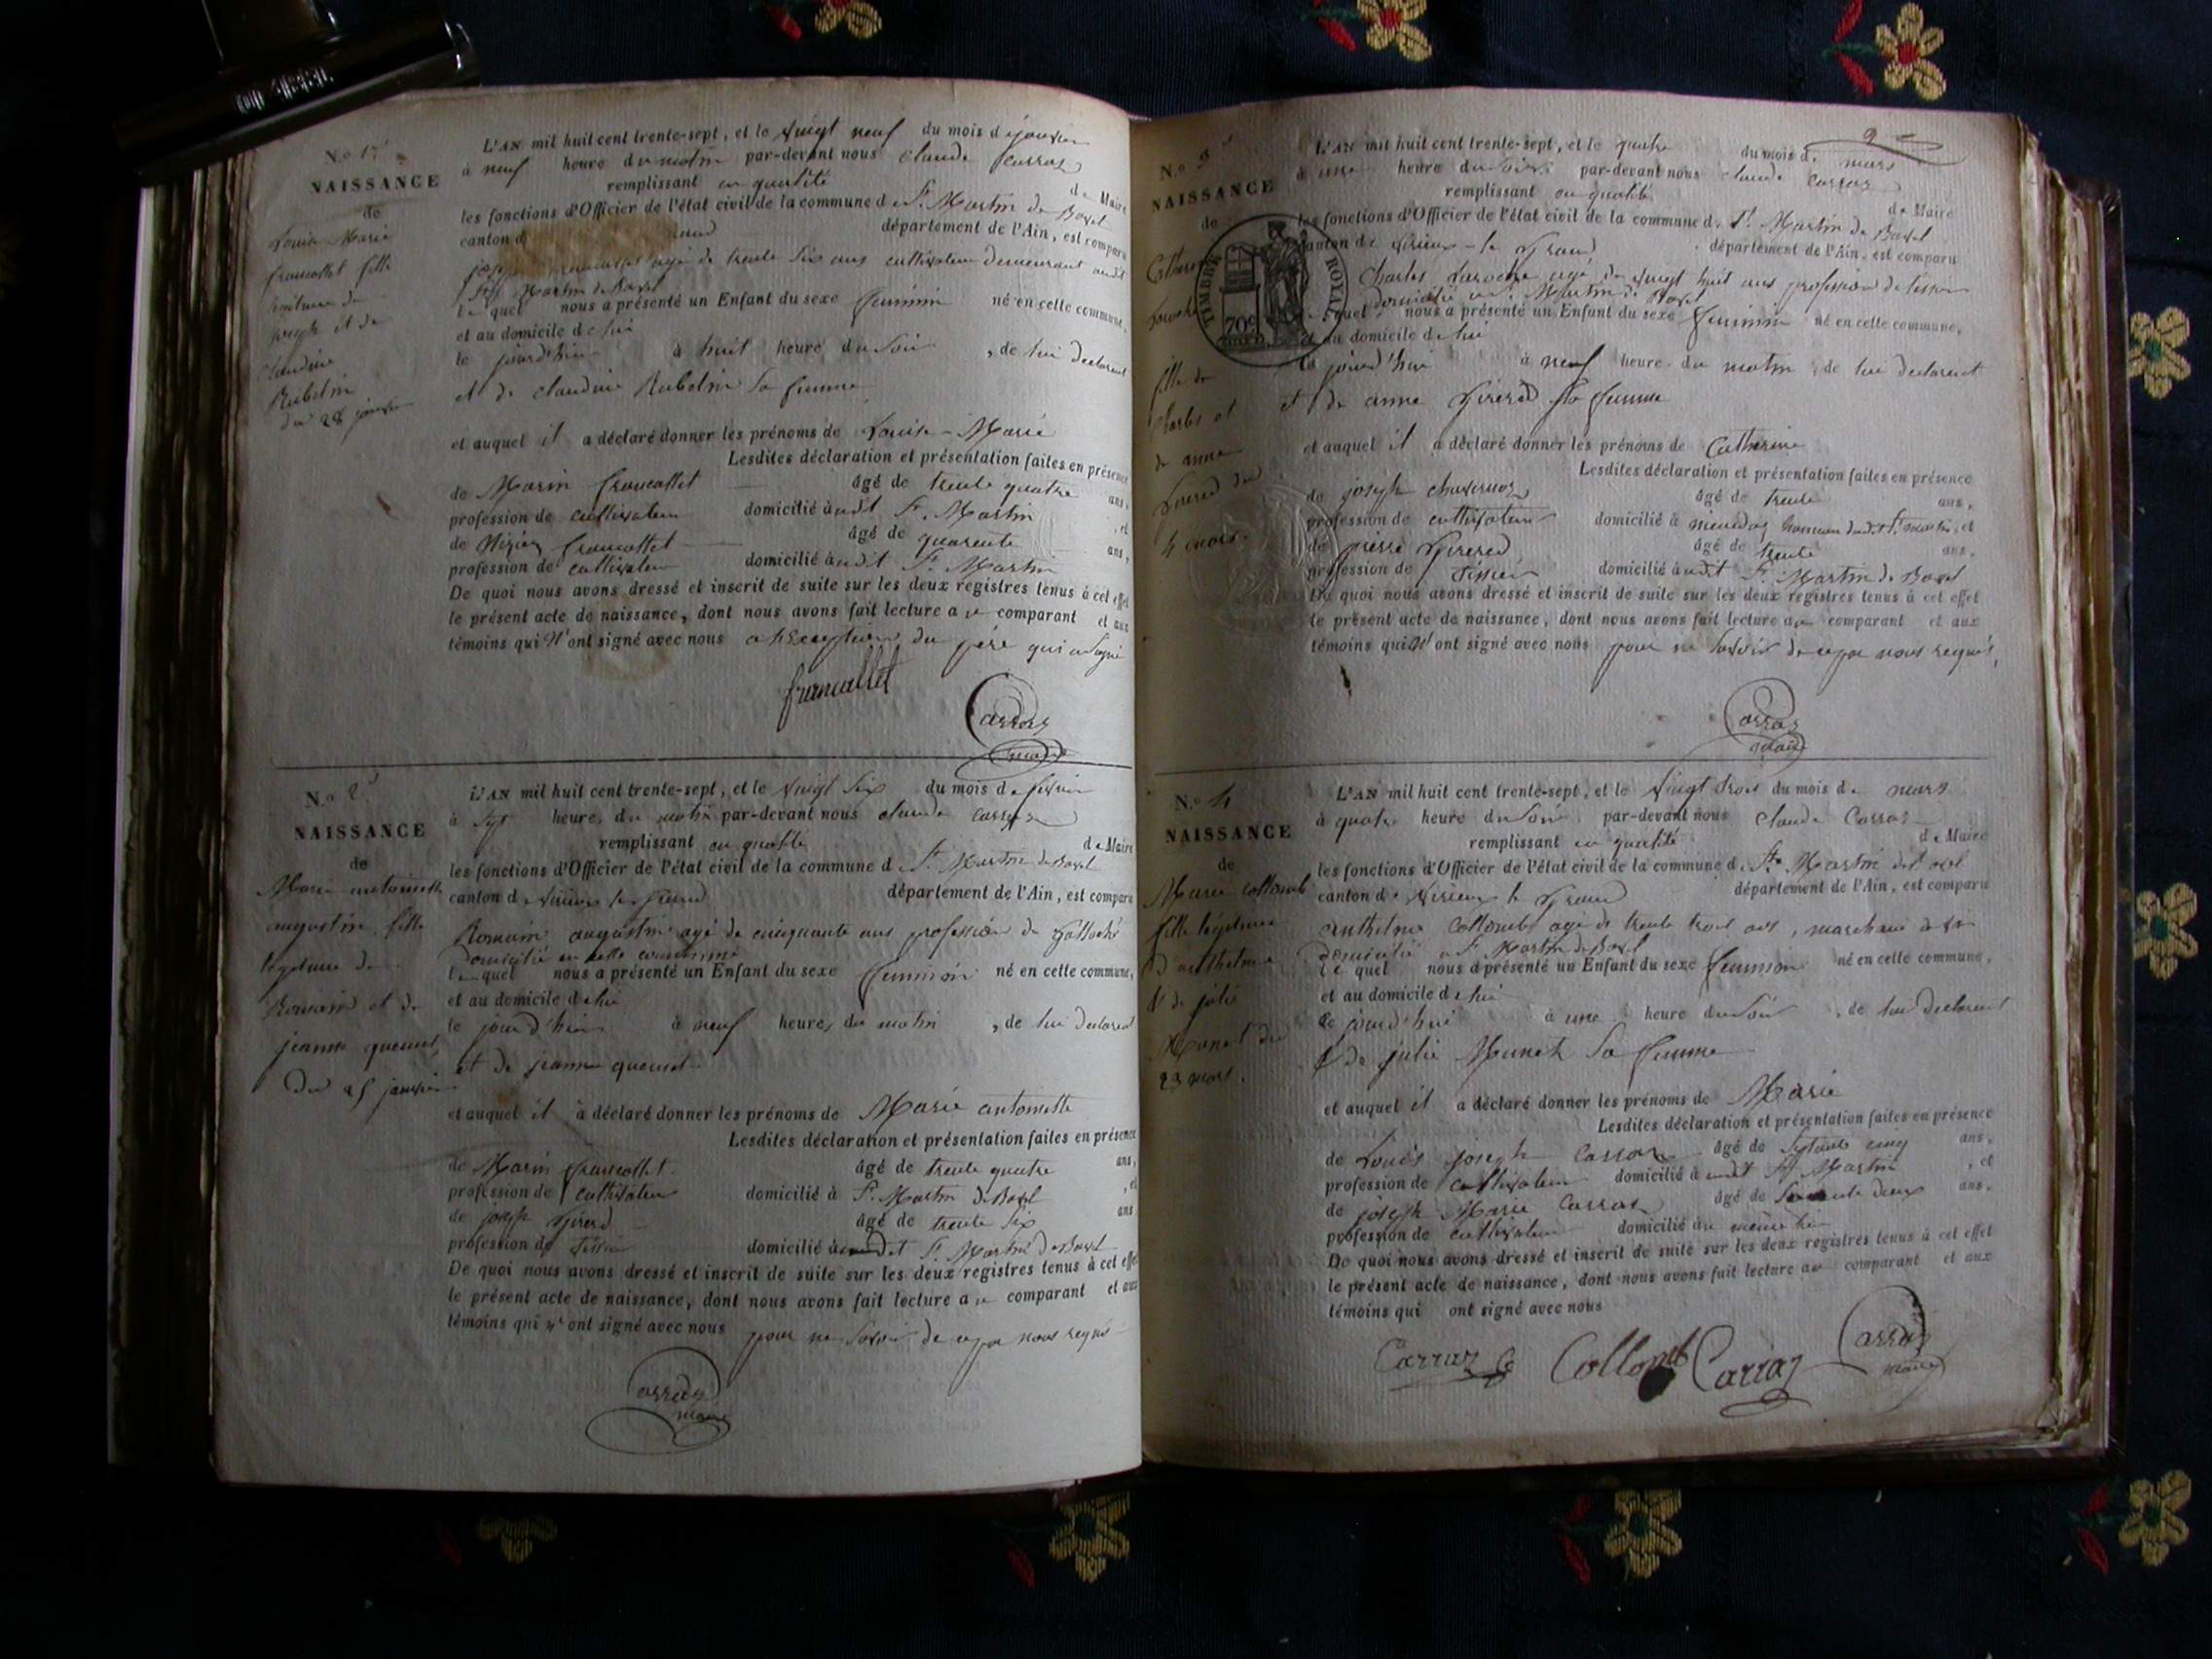 N.o 1
NAISSANCE
de
Louise Marie
francallet fille
legitime de
joseph et de
claudine
Rubelin
du 28 janvier
L'AN mil huit cent trente-sept, et le vingt neuf du mois de janvier
à neuf heure du matin par-devant nous claude Carraz
remplissant en qualité de Maire
les fonctions d'Officier de l'état civil de la commune de St. Martin de Bavel
canton d département de l'Ain, est comparu
agé de trente six ans cultivateur demeurant audit
St Martin de Bavel
le quel nous a présenté un Enfant du sexe feminin né en cette commune,
et au domicile de lui
le jour d'hier à huit heure du Soir, de lui declarant
et de claudine Rubelin Sa femme
et auquel il a déclaré donner les prénoms de Louise-Marie
Lesdites déclaration et présentation faites en présence
de Marin francallet âgé de trente quatre ans,
profession de cultivateur domicilié audit St. Martin, et
de francallet âgé de quarante ans,
profession de cultivateur domicilié audit St. Martin
De quoi nous avons dressé et inscrit de suite sur les deux registres tenus à cet effet
le présent acte de naissance, dont nous avons fait lecture au comparant et aux
témoins qui n'ont signé avec nous a l'Exception du père qui a Signé
francallet
Carraz
maire
N.o 2
NAISSANCE
de
Marie antoinette
augustin fille
legitime de
Romain et de
jeanne
du 25 janvier
L'AN mil huit cent trente-sept, et le vingt Six du mois de fevrier
à Sept heure, du matin par-devant nous claude Carraz
remplissant en qualité de Maire
les fonctions d'Officier de l'état civil de la commune de St. Martin de Bavel
canton de Virieux le grand département de l'Ain, est comparu
Romain augustin agé de cinquante ans profession de
domicilié en cette commune
le quel nous a présenté un Enfant du sexe feminin né en cette commune,
et au domicile de lui
le jour d'hier à neuf heure, du matin, de lui declarant
et de jeanne
et auquel il a déclaré donner les prénoms de Marie antoinette
Lesdites déclaration et présentation faites en présence
de Marin francallet âgé de trente quatre ans,
profession de cultivateur domicilié à St. Martin de Bavel, et
de joseph Girerd âgé de trente Six ans
profession de Tissier domicilié audit St. Martin de Bavel
De quoi nous avons dressé et inscrit de suite sur les deux registres tenus à cet effet
le présent acte de naissance, dont nous avons fait lecture au comparant et aux
témoins qui n'ont signé avec nous pour ne Savoir de ce par nous requis
Carraz
maire
N.o 3
NAISSANCE
de
Catherine
fille de
Charles et
de anne
Girerd du
4 mars.
TIMBRE ROYAL
70c
L'AN mil huit cent trente-sept, et le quatre du mois de mars
à une heure du Soir par-devant nous claude Carraz
remplissant en qualité de Maire
les fonctions d'Officier de l'état civil de la commune de St. Martin de Bavel
canton de Virieux-le Grand département de l'Ain, est comparu
Charles agé de vingt huit ans profession de tissier
domicilié a St. Martin de Bavel
le quel nous a présenté un Enfant du sexe feminin né en cette commune,
et au domicile de lui
le jourd'hui à neuf heure du matin, de lui declarant
et de anne Girerd Sa femme
et auquel il a déclaré donner les prénoms de Catherine
Lesdites déclaration et présentation faites en présence
de joseph âgé de trente ans,
profession de cultivateur domicilié à hameau dudit St. Martin, et
de pierre Girerd âgé de trente ans,
profession de Tissier domicilié audit St. Martin de Bavel
De quoi nous avons dressé et inscrit de suite sur les deux registres tenus à cet effet
le présent acte de naissance, dont nous avons fait lecture au comparant et aux
témoins qui n'ont signé avec nous pour ne Savoir de ce par nous requis,
Carraz
maire
N.o 4
NAISSANCE
de
Marie collomb
fille légitime
d'anthelme
et de julie
Munet du
23 mars.
L'AN mil huit cent trente-sept, et le vingt trois du mois de mars
à quatre heure du Soir par-devant nous Claude Carraz
remplissant en qualité de Maire
les fonctions d'Officier de l'état civil de la commune de St. Martin de Bavel
canton de Virieux le Grand département de l'Ain, est comparu
anthelme Collomb agé de trente trois ans, marchand
domicilié a St. Martin de Bavel
le quel nous a présenté un Enfant du sexe feminin né en cette commune,
et au domicile de lui
le jourd'hui à une heure du Soir, de lui declarant
et de julie Munet Sa femme
et auquel il a déclaré donner les prénoms de Marie
Lesdites déclaration et présentation faites en présence
de Louis joseph Carraz âgé de Septante cinq ans,
profession de cultivateur domicilié audit St. Martin, et
de joseph Marie Carraz âgé de deux ans.
profession de cultivateur domicilié au même lieu
De quoi nous avons dressé et inscrit de suite sur les deux registres tenus à cet effet
le présent acte de naissance, dont nous avons fait lecture au comparant et aux
témoins qui ont signé avec nous
Carraz Collomb Carraz Carraz
maire